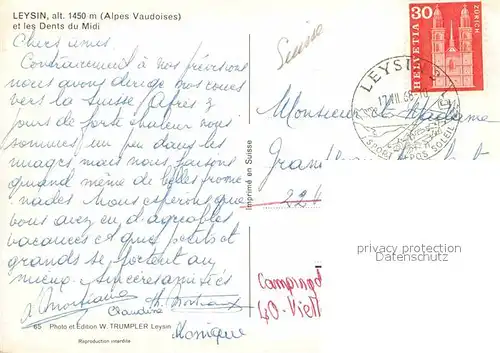 LEYSIN, alt. 1450 m (Alpes Vaudoises)
et les Dents du Midi
Chers amis.
Contrairement à nos prévisions
nous avons dirigé nos roues
vers la Suisse. Après 2
jours de forte chaleur nous
sommes un peu dans les
nuages mais nous faisons
quand même de belles prome
nades. Nous espérons que
vous avez eu d'agréables
vacances et que petits et
grands se portent au
mieux. Sincères amitiés
Claudine
Monique
65 Photo et Edition W. TRUMPLER Leysin
Reproduction interdite
Imprimé en Suisse
Suisse
HELVETIA
30
ZÜRICH
LEYSIN
SPORT REPOS SOLEIL
Monsieur et Madame
Grand
22
Camping
40 - Viell
privacy protection
Datenschutz